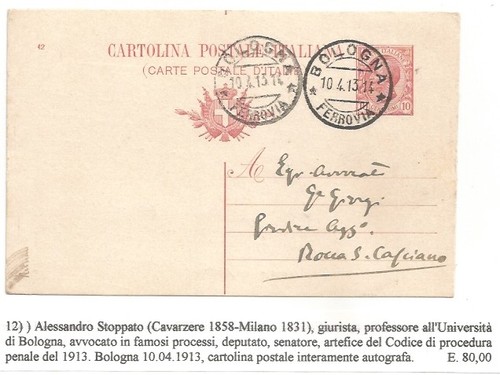 42 CARTOLINA POSTALE ITALIANA
(CARTE POSTALE D'ITALIE)
BOLOGNA
10.4.13.14
* FERROVIA *
BOLOGNA
10.4.13.14
* FERROVIA *
10
A Egr. Avvocato
Giorgi
Rocca S. Casciano
12) ) Alessandro Stoppato (Cavarzere 1858-Milano 1831), giurista, professore all'Università
di Bologna, avvocato in famosi processi, deputato, senatore, artefice del Codice di procedura
penale del 1913. Bologna 10.04.1913, cartolina postale interamente autografa. E. 80,00